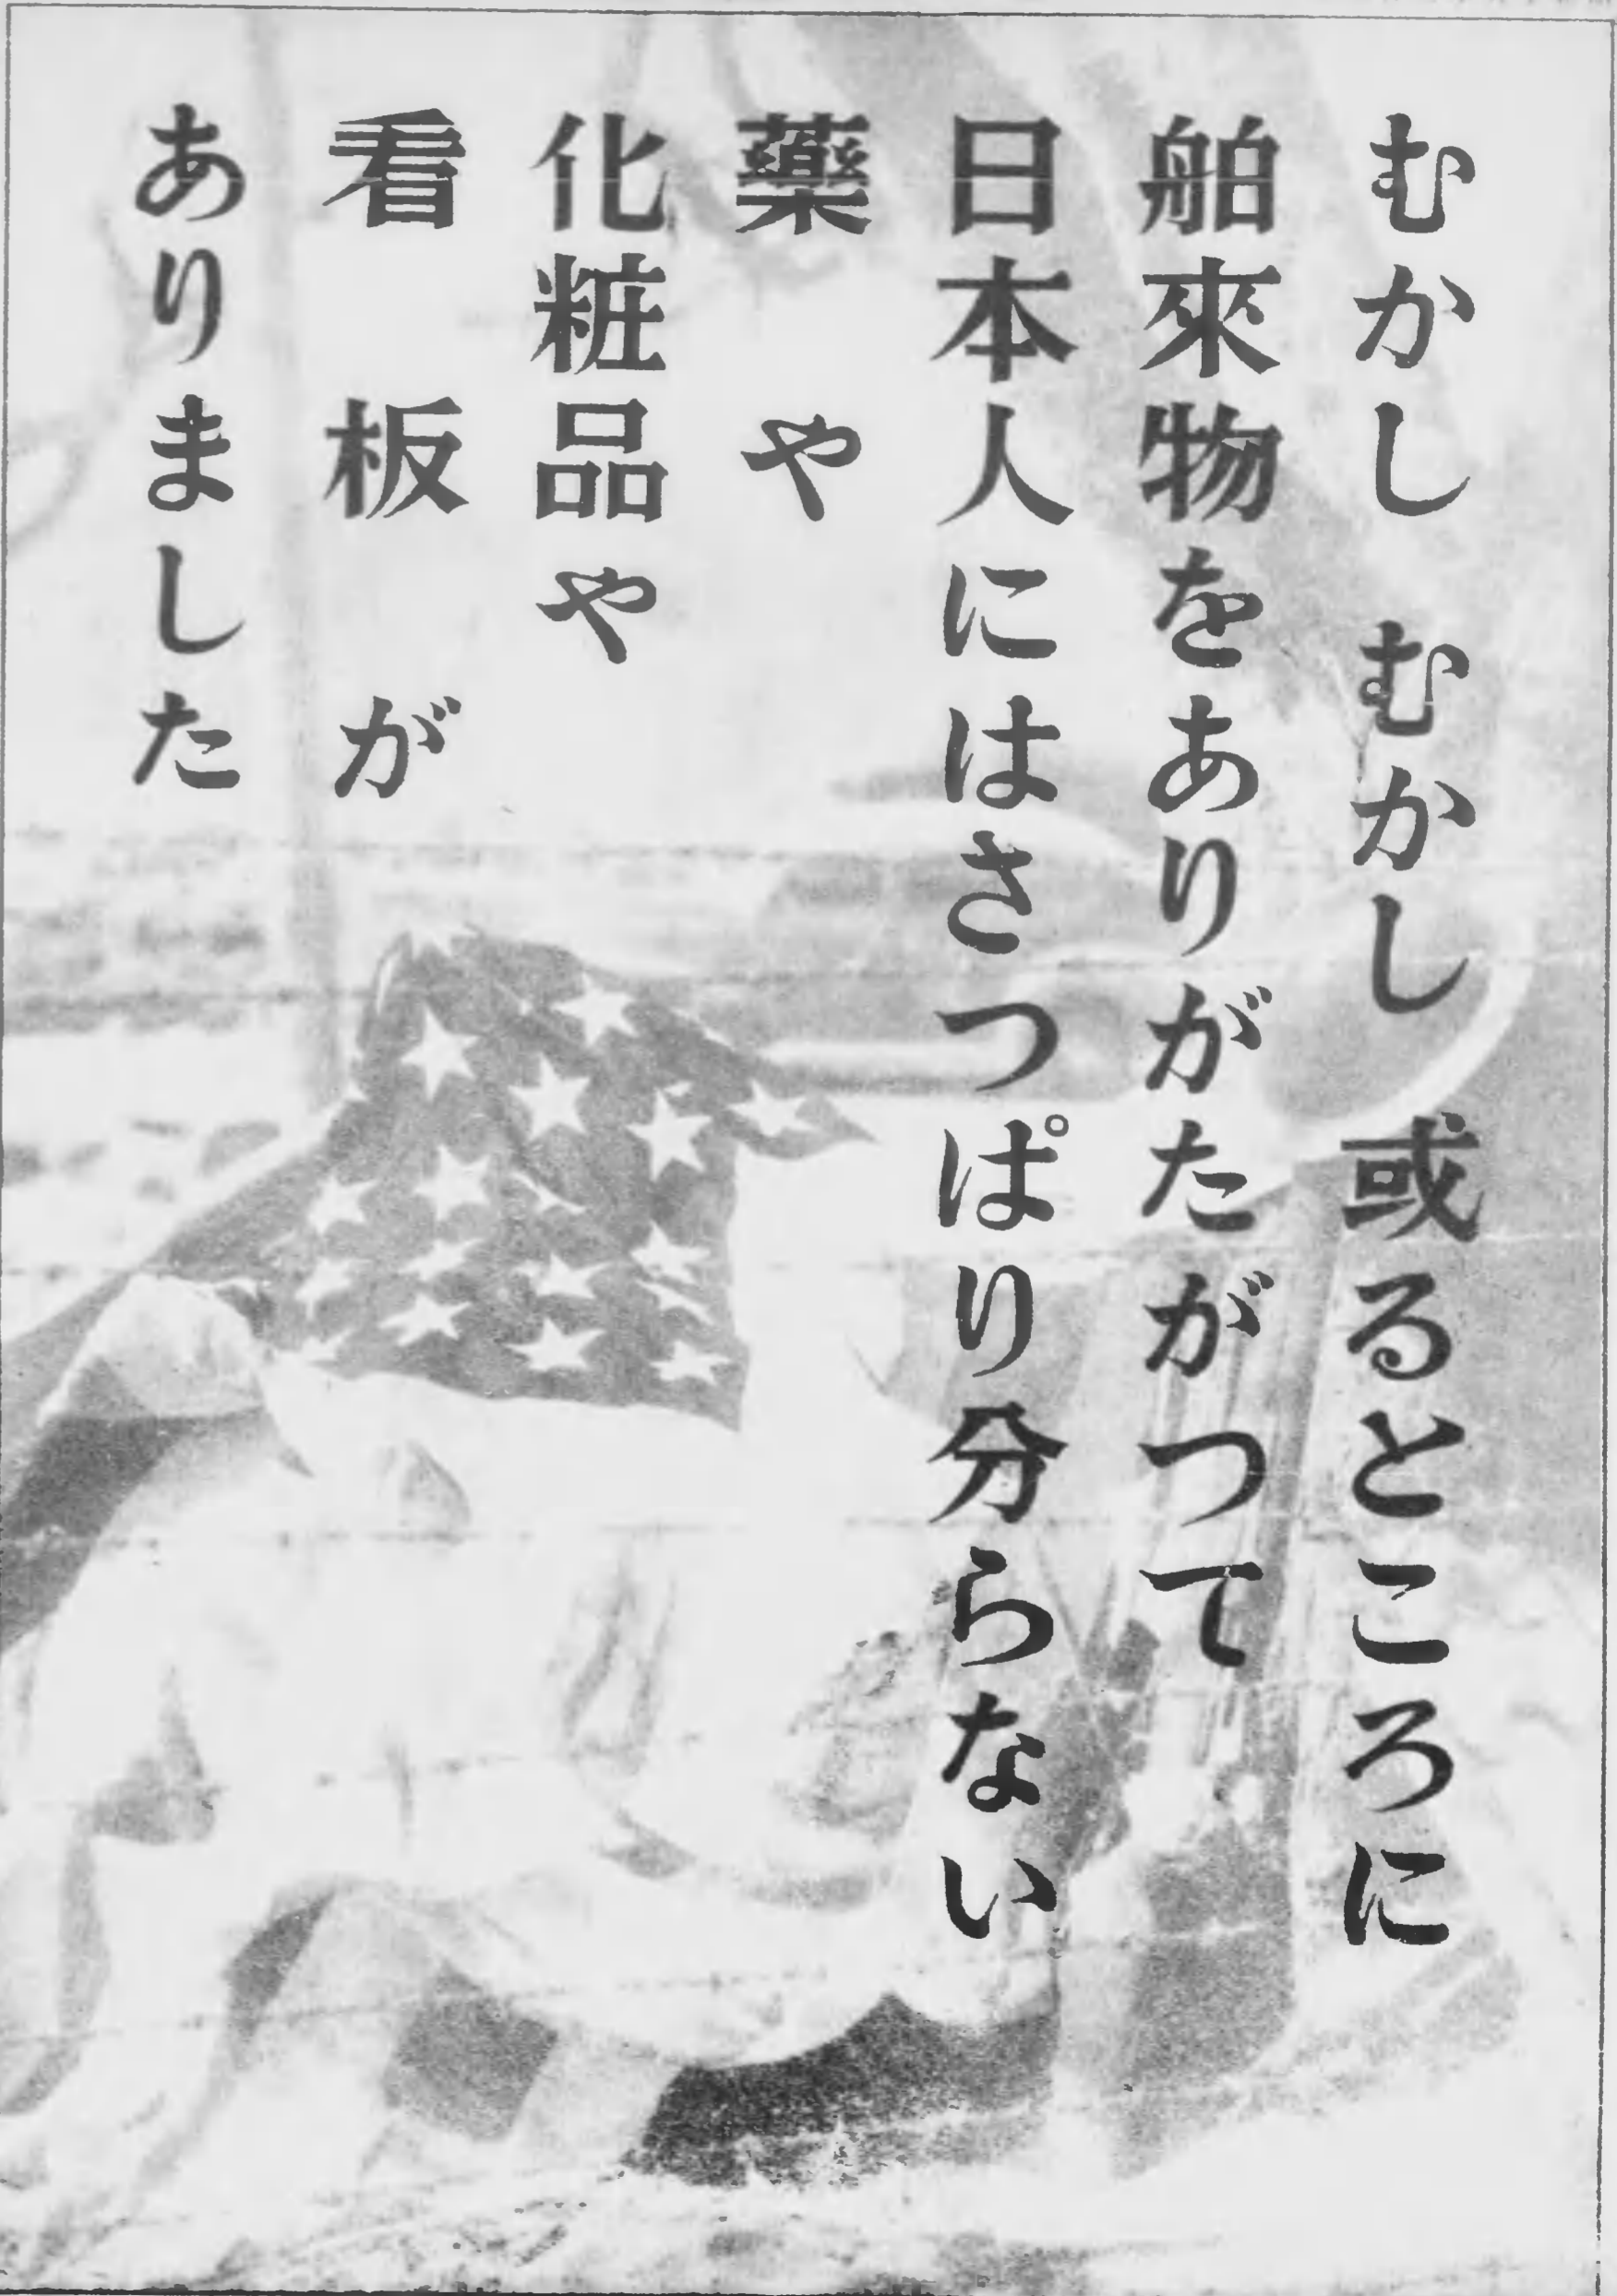 むかし むかし 或るところに
舶來物をありがたがつて
日本人にはさつぱり分らない
藥や
化粧品や
看板が
ありました